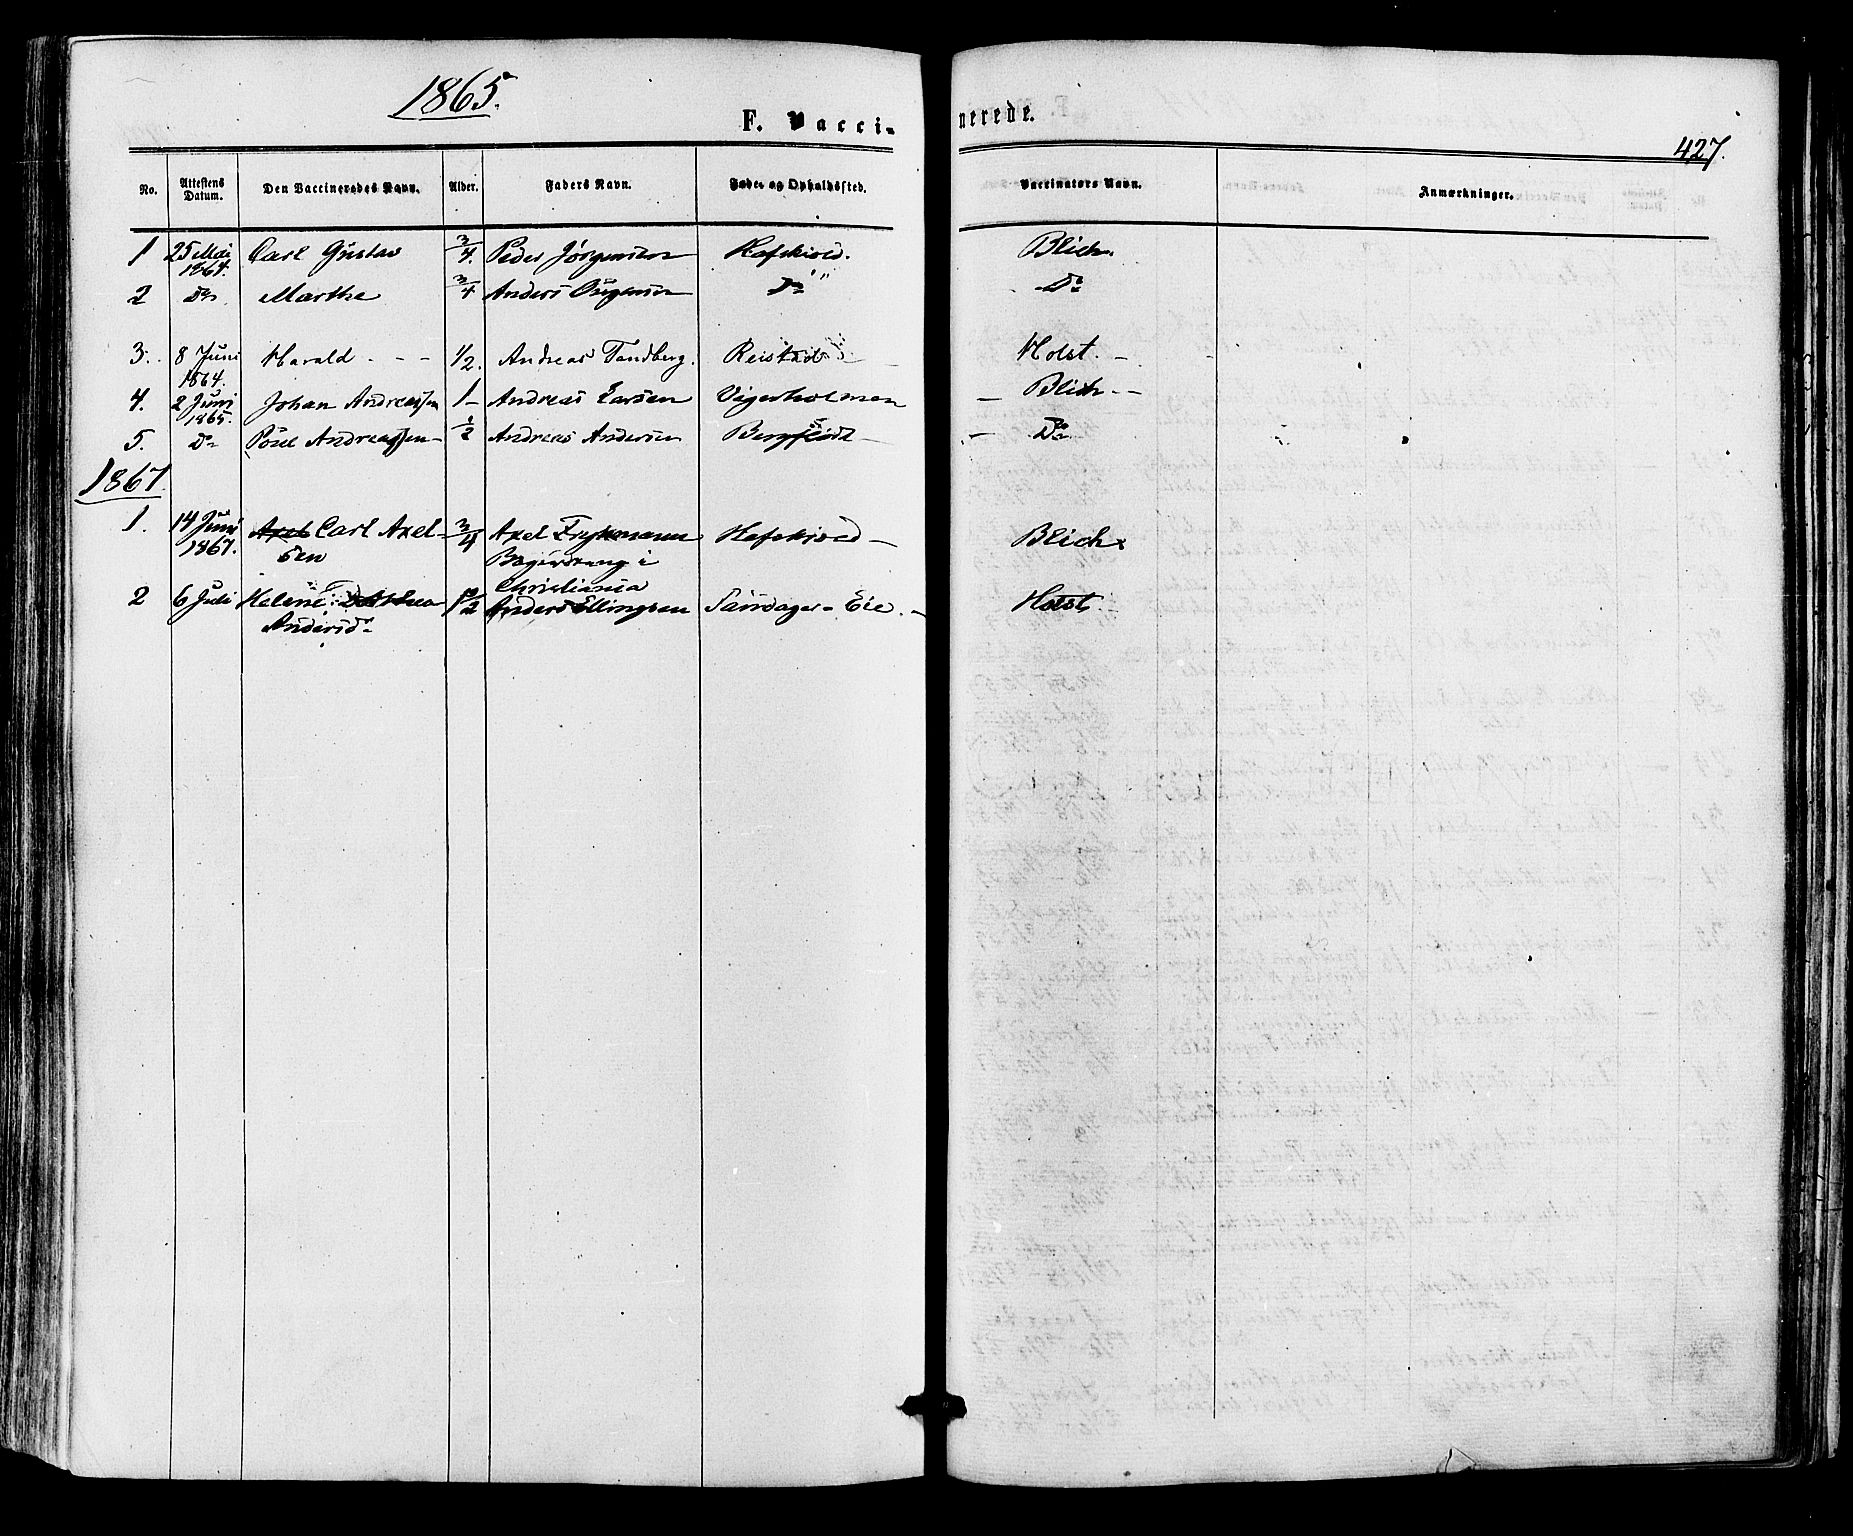 1865.
F. Vacci-
nerede.
427.
No. Attestens Datum. Den Vaccineredes Navn. Alder. Faders Navn. Føde- og Opholdssted. Vaccinators Navn. Anmærkninger.
1 25 Mai 1864. Carl Gustav 3/4. Peder Jørgensen Hafskiold. Blich.
2 Do Marthe 3/4 Anders Do Do
3. 8 Juni 1864. Harald - - 1/2. Andreas Tandberg. Reistad Holst. -
4. 2 Juni 1865. Johan Andreassen 1- Andreas Larsen Vigerholmen - Blich -
5. Do Poul Andreassen - 1/2 Andreas Andersen - Do
1867.
1. 14 Juni 1867. Axel Carl Axel- 3/4 Axel Frykmann Hafskiold - Blich
sen i
Christiania
2 6 Juli Helene Dorthea 1/2 Anders Ellingsen Sandager-Eie. - Holst.
Andersdr